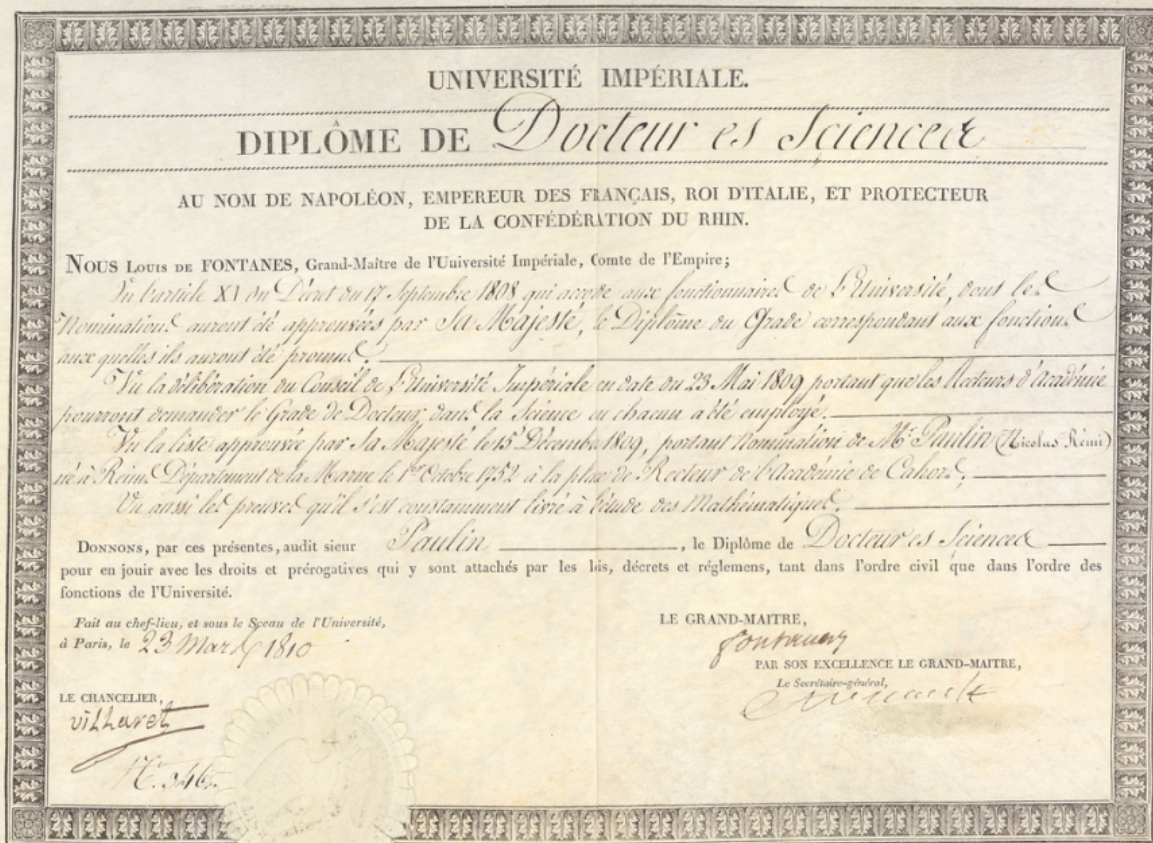 UNIVERSITÉ IMPÉRIALE.
DIPLÔME DE Docteur es Sciences
AU NOM DE NAPOLÉON, EMPEREUR DES FRANÇAIS, ROI D'ITALIE, ET PROTECTEUR
DE LA CONFÉDÉRATION DU RHIN.
NOUS LOUIS DE FONTANES, Grand-Maître de l'Université Impériale, Comte de l'Empire;
Vu l'article XI du Décret du 17 Septembre 1808 qui accorde aux fonctionnaires de l'Université, dont les
Nominations auront été approuvées par Sa Majesté, le Diplôme du Grade correspondant aux fonctions
aux quelles ils auront été promus.
Vu la délibération du Conseil de l'Université Impériale en date du 23 Mai 1809 portant que les Recteurs d'Académie
pourront demander le Grade de Docteur, dans la Science ou chacun a été employé.
Vu la liste approuvée par Sa Majesté le 15 Décembre 1809, portant Nomination de Mr. Paulin (Nicolas Rémi)
né à Reims Département de la Marne le 1er Octobre 1752 à la place de Recteur de l'Académie de Cahors;
Vu aussi les preuves qu'il s'est constamment livré à l'étude des Mathématiques.
DONNONS, par ces présentes, audit sieur Paulin, le Diplôme de Docteur es Sciences
pour en jouir avec les droits et prérogatives qui y sont attachés par les lois, décrets et réglemens, tant dans l'ordre civil que dans l'ordre des
fonctions de l'Université.
Fait au chef-lieu, et sous le Sceau de l'Université,
à Paris, le 23 Mars 1810
LE GRAND-MAITRE,
Fontanes
PAR SON EXCELLENCE LE GRAND-MAITRE,
Le Secrétaire-général,
LE CHANCELIER,
Villaret